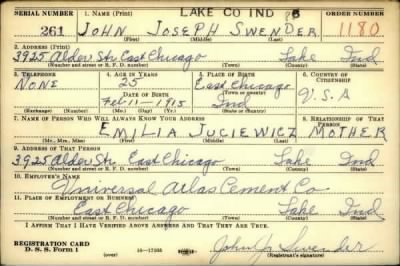 SERIAL NUMBER 1. NAME (Print) LAKE CO IND ORDER NUMBER
261 JOHN JOSEPH SWENDER 1180
(First) (Middle) (Last)
2. ADDRESS (Print)
3925 Alder Str. East Chicago Lake Ind
(Number and street or R. F. D. number) (Town) (County) (State)
3. TELEPHONE 4. AGE IN YEARS 5. PLACE OF BIRTH 6. COUNTRY OF CITIZENSHIP
NONE 25 East Chicago U.S.A
DATE OF BIRTH (Town or county)
Feb 11-1915 Ind
(Exchange) (Number) (Mo.) (Day) (Yr.) (State or country)
7. NAME OF PERSON WHO WILL ALWAYS KNOW YOUR ADDRESS 8. RELATIONSHIP OF THAT PERSON
EMILIA JUCIEWICZ MOTHER
(Mr., Mrs., Miss) (First) (Middle) (Last)
9. ADDRESS OF THAT PERSON
3925 Alder Str. East Chicago Lake Ind
(Number and street or R. F. D. number) (Town) (County) (State)
10. EMPLOYER'S NAME
Universal Atlas Cement Co
11. PLACE OF EMPLOYMENT OR BUSINESS
East Chicago Lake Ind
(Number and street or R. F. D. number) (Town) (County) (State)
I AFFIRM THAT I HAVE VERIFIED ABOVE ANSWERS AND THAT THEY ARE TRUE.
REGISTRATION CARD
D. S. S. Form 1 16—17105 John J. Swender
(over) (Registrant's signature)